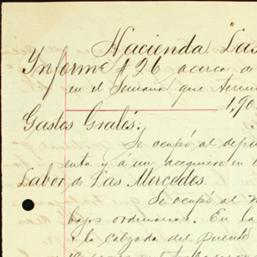 Hacienda "Las
Informe # 26 acerca d
en el Semana que termi
190
Gastos Grales.
Se ocupó al depen
enta y á un acequiero en
Labor de Las Mercedes.
Se ocupó al
bajos ordinarios. En la
á la calzada del puente